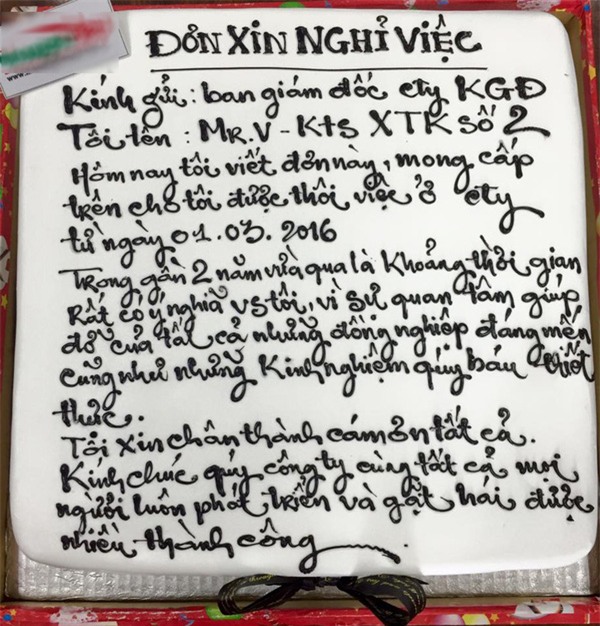 ĐƠN XIN NGHỈ VIỆC
Kính gửi: ban giám đốc cty KGĐ
Tôi tên : MR.V - Kts XTK số 2
Hôm nay tôi viết đơn này, mong cấp
trên cho tôi được thôi việc ở cty
từ ngày 01.03.2016
Trong gần 2 năm vừa qua là khoảng thời gian
Rất có ý nghĩa vs tôi, vì sự quan tâm giúp
đỡ của tất cả những đồng nghiệp đáng mến
cũng như những kinh nghiệm qúy báu
thức.
Tôi xin chân thành cám ơn tất cả.
Kính chúc qúy công ty cùng tất cả mọi
người luôn phát triển và gặt hái được
nhiều thành công